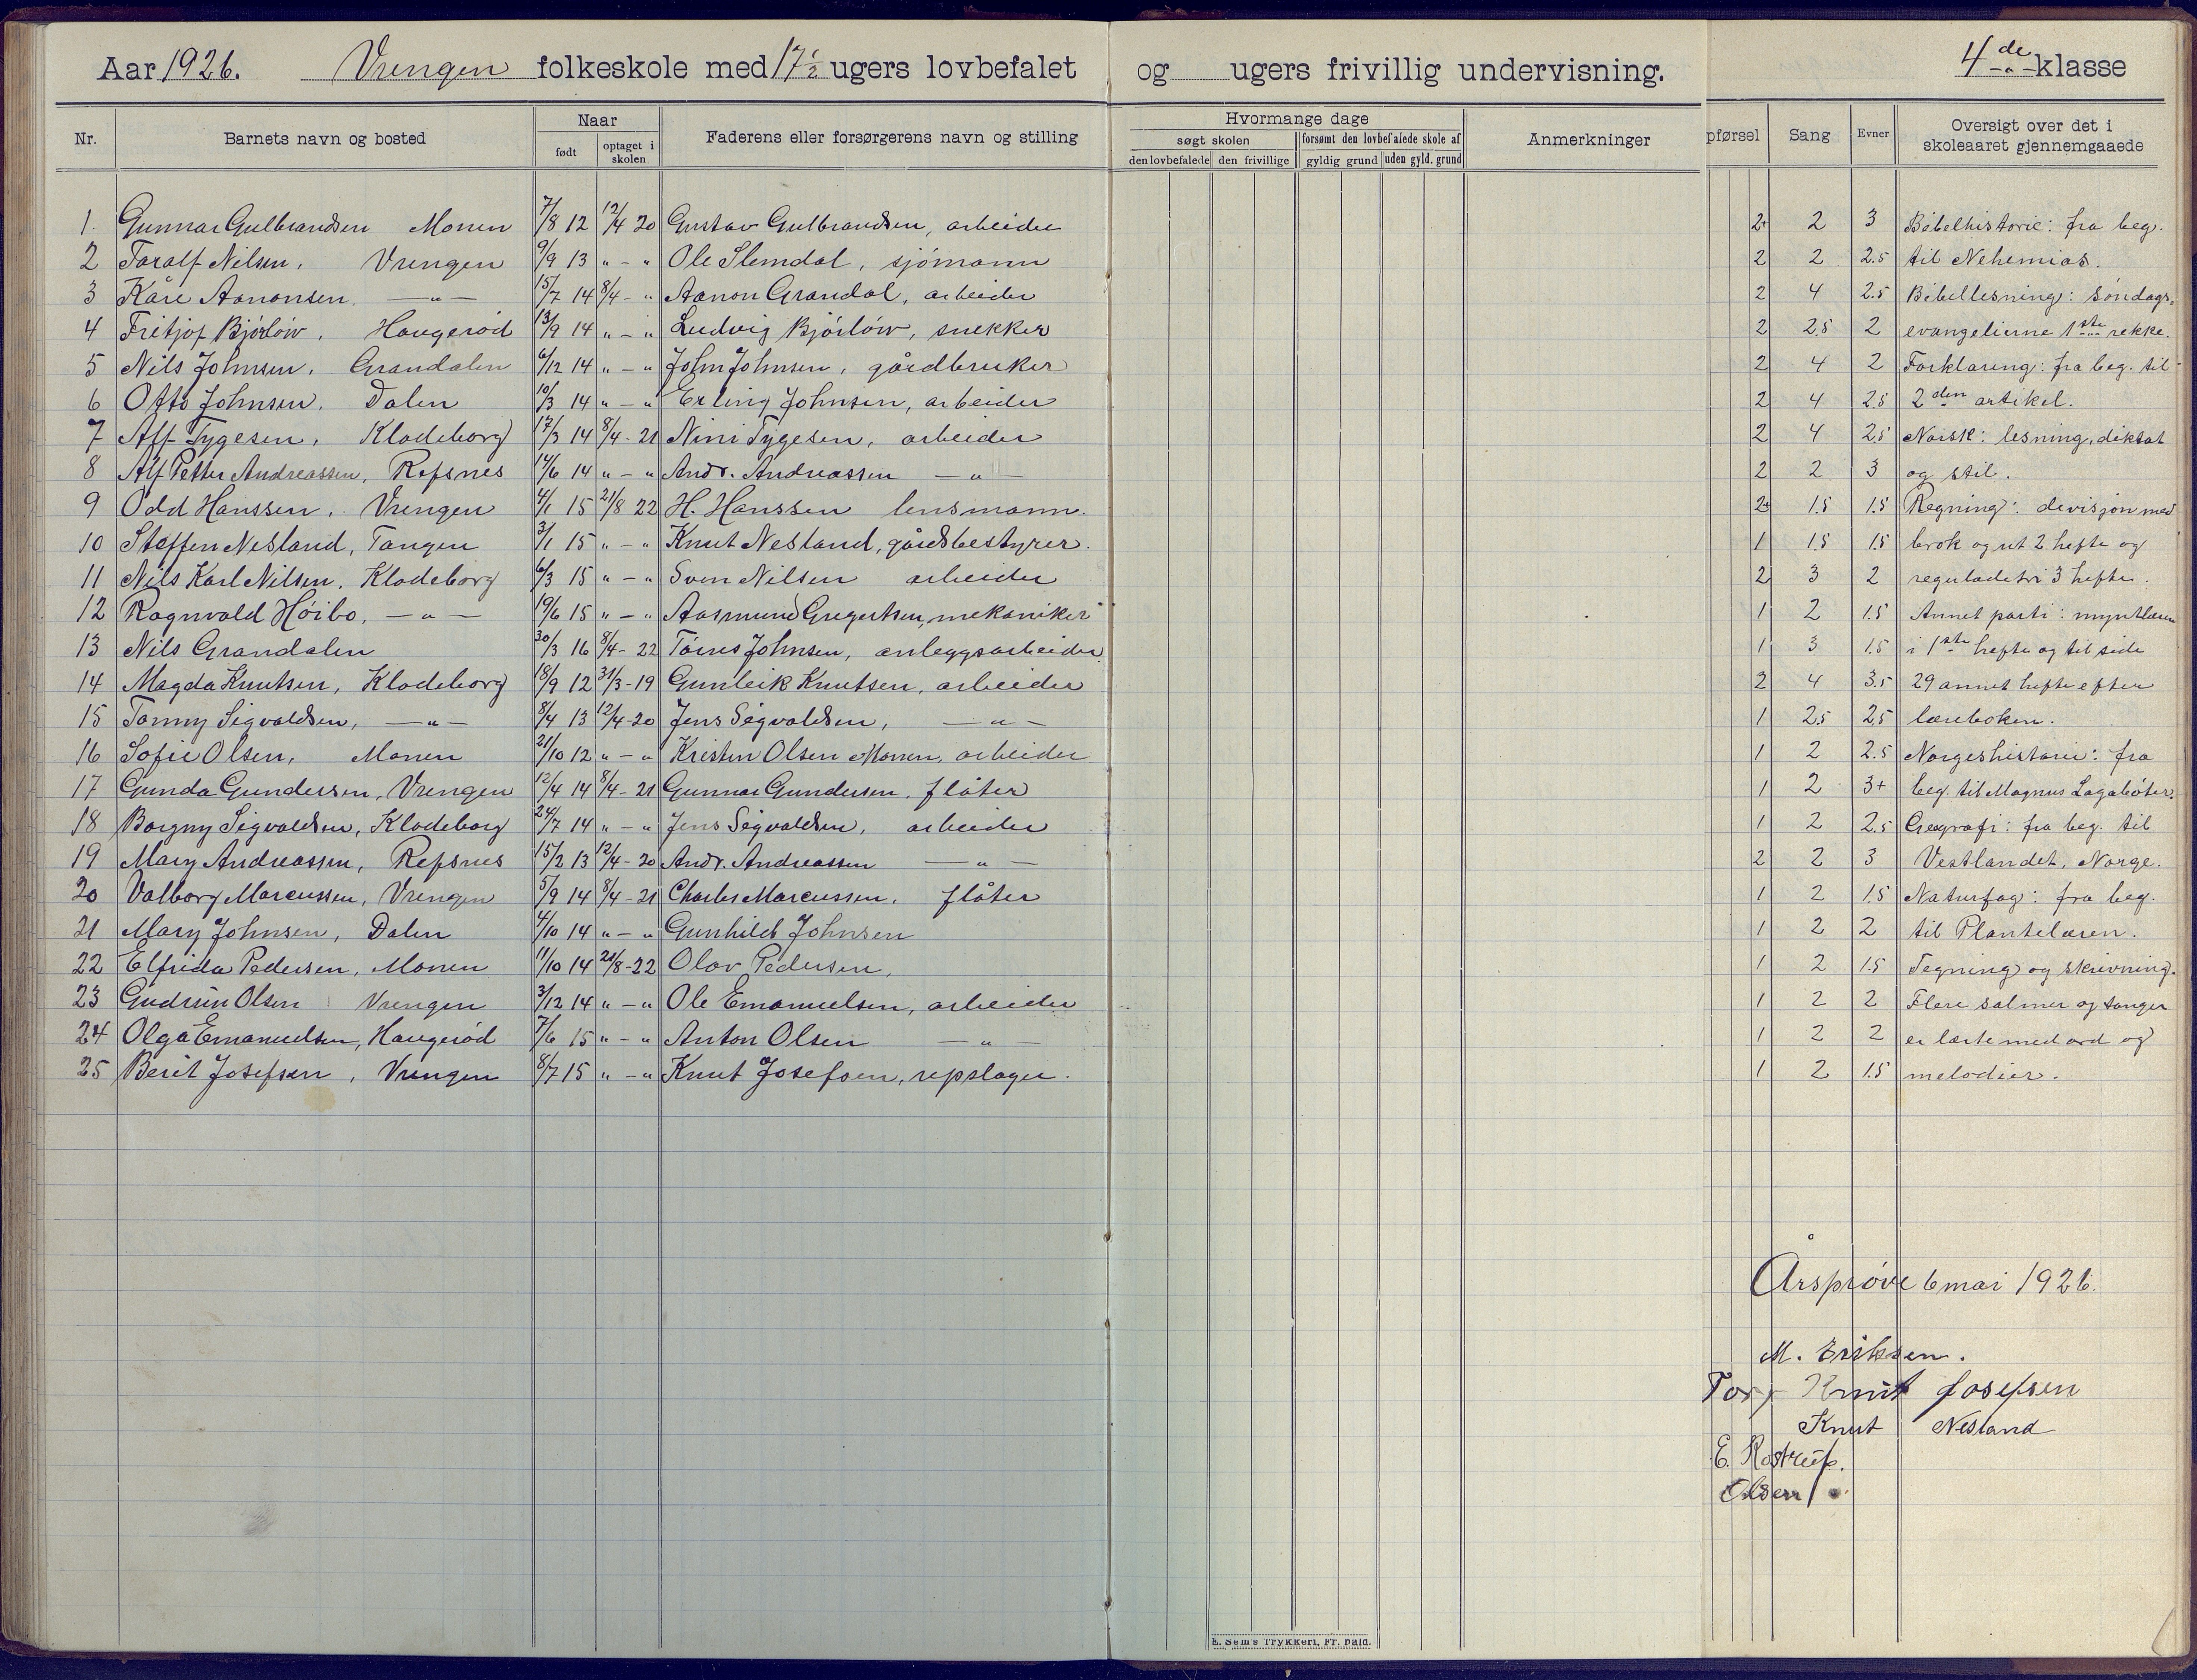 Aar 1926. Vrengen folkeskole med 17½ ugers lovbefalet og ugers frivillig undervisning. 4de klasse
Nr. Barnets navn og bosted Naar født optaget i skolen Faderens eller forsørgerens navn og stilling Hvormange dage søgt skolen den lovbefalede den frivillige forsømt den lovbefalede skole af gyldig grund uden gyld. grund Anmerkninger pførsel Sang Evner Oversigt over det i skoleaaret gjennemgaaede
1. Gunnar Gulbrandsen Monen 7/8 12 12/4 20 Gustav Gulbrandsen, arbeider 2+ 2 3 Bibelhistorie: fra beg.
2 Taralf Nilsen, Vrengen 9/9 13 " - " Ole Slemdal, sjömann 2 2 2.5 til Nehemias.
3 Kåre Aanonsen - " - 15/7 14 8/4 - " Aanon Grandal, arbeider 2 4 2.5 Bibellesning: söndags=
4 Fritjof Bjórlów, Haugeród 13/9 14 " - " Ludvig Bjórlów, snekker 2 2.5 2 evangelierne 1ste rekke.
5 Nils Johnsen, Grandalen 6/12 14 " - " John Johnsen, gårdbruker 2 4 2 Forklaring: fra beg. til
6 Otto Johnsen, Dalen 10/3 14 " - " Erling Johnsen, arbeider 2 4 2.5 2den artikel.
7 Alf Tygesen, Klodeborg 17/3 14 8/4 - 21 Nini Tygesen, arbeider 2 4 2.5 Norsk: lesning, diktat
8 Alf Petter Andreassen, Refsnes 14/6 14 " - " Andr. Andreassen - " - 2 2 3 og stil.
9 Odd Hanssen, Vrengen 4/1 15 21/8 22 H. Hanssen lensmann. 2+ 1.5 1.5 Regning: devisjon med
10 Steffen Nesland, Tangen 3/1 15 " - " Knut Nesland, gårdsbestyrer. 1 1.5 1.5 brok og ut 2 hefte og
11 Nils Karl Nilsen, Klodeborg 6/3 15 " - " Sven Nilsen arbeider 2 3 2 reguladetri 3 hefte.
12 Ragnvald Höibo, - " - 19/6 15 " - " Aasmund Gregertsen, mekaniker 1 2 1.5 Annet parti: myntlæren
13 Nils Grandalen 30/3 16 8/4 - 22 Tórres Johnsen, anleggsarbeider. 1 3 1.5 i 1ste hefte og til side
14 Magda Knutsen, Klodeborg 18/9 12 31/3 - 19 Gunleik Knutsen, arbeider 2 4 3.5 29 annet hefte efter
15 Tanny Sigvaldsen, - " - 8/4 13 12/4 - 20 Jens Sigvaldsen, - " - 1 2.5 2.5 læreboken.
16 Sofie Olsen, Monen 21/10 12 " - " Kristen Olsen Monen, arbeider 1 2 2.5 Norgeshistorie: fra
17 Gunda Gundersen, Vrengen 12/4 14 8/4 - 21 Gunnar Gundersen, flåter 1 2 3+ beg. til Magnus Lagaböter.
18 Borgny Sigvaldsen, Klodeborg 24/7 14 " - " Jens Sigvaldsen, arbeider 1 2 2.5 Geografi: fra beg. til
19 Mary Andreassen, Refsnes 15/2 13 12/4 - 20 Andr. Andreassen - " - 2 2 3 Vestlandet, Norge.
20 Valborg Marcussen, Vrengen 5/9 14 8/4 - 21 Charles Marcussen, flåter 1 2 1.5 Naturfag: fra beg.
21 Mary Johnsen, Dalen 4/10 14 " - " Gunhild Johnsen 1 2 2 til Plantelæren.
22 Elfrida Pedersen, Monen 11/10 14 21/8 - 22 Olav Pedersen, 1 2 1.5 Tegning og skrivning.
23 Gudrun Olsen Vrengen 3/12 14 " - " Ole Emanuelsen, arbeider 1 2 2 Flere salmer og sanger
24 Olga Emanuelsen, Haugeród 7/6 15 " - " Anton Olsen - " - 1 2 2 er lærte med ord og
25 Berit Josefsen, Vrengen 8/7 15 " - " Knut Josefsen, repslager. 1 2 1.5 melodier.
Årspröve 6 mai 1926.
M. Eriksen.
Knut Josefsen
Knut Nesland
E. Rostrup.
Olsen
E. Sem's Trykkeri, Fr.hald.